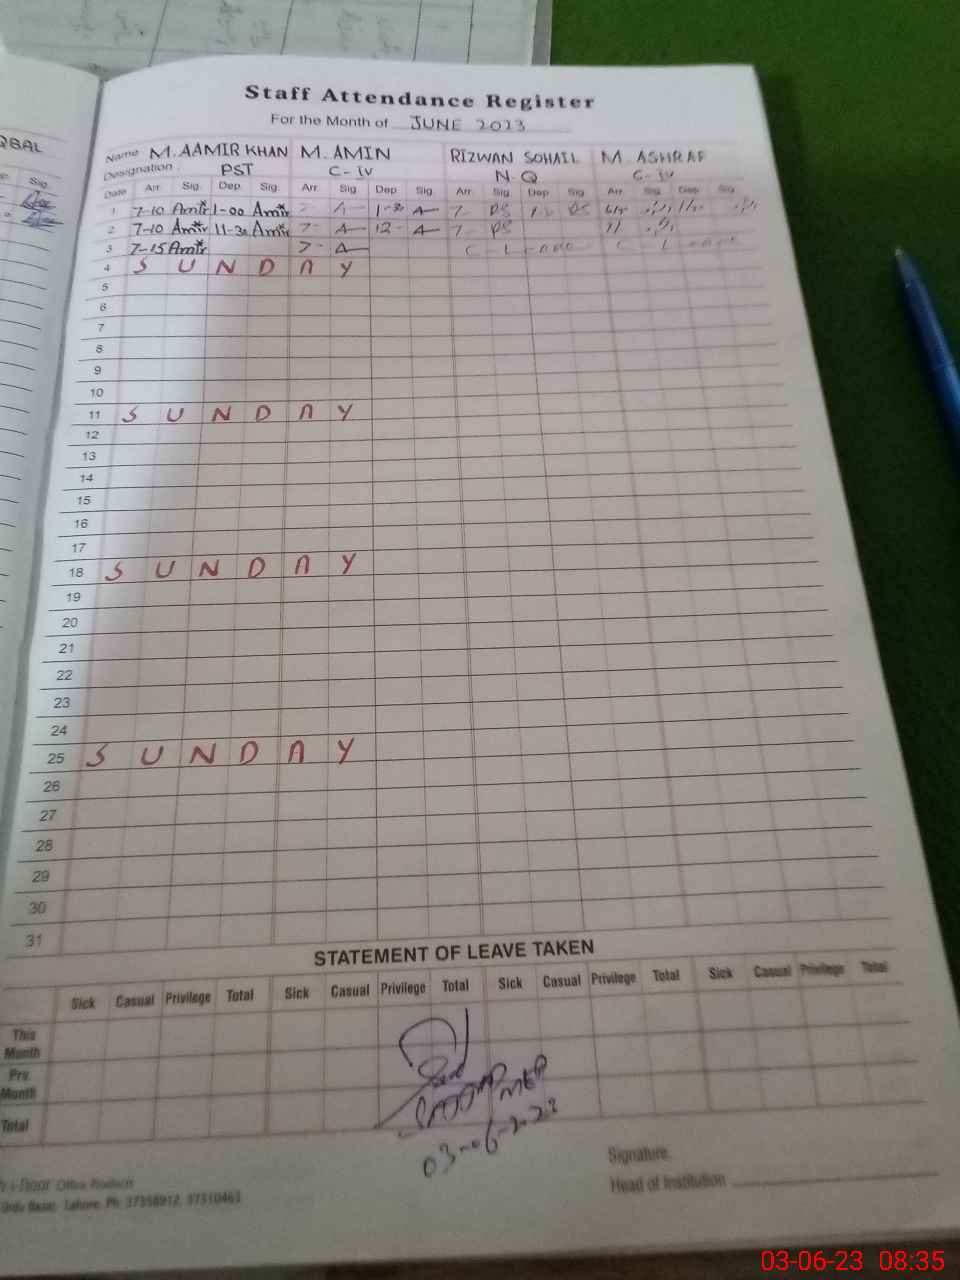 QBAL
Sig.
Staff Attendance Register
For the Month of JUNE 2023
Name M. AAMIR KHAN M. AMIN RIZWAN SOHAIL M. ASHRAF
Designation PST C-IV N.Q C-IV
Date Arr. Sig. Dep. Sig. Arr. Sig. Dep. Sig. Arr. Sig. Dep. Sig. Arr. Sig. Dep. Sig.
1 7-10 Amir 1-00 Amir
2 7-10 Amir 11-30 Amir 7- A 12- A 7-
3 7-15 Amir 7- A C - L C - L
4 SUNDAY
5
6
7
8
9
10
11 SUNDAY
12
13
14
15
16
17
18 SUNDAY
19
20
21
22
23
24
25 SUNDAY
26
27
28
29
30
31
STATEMENT OF LEAVE TAKEN
Sick Casual Privilege Total Sick Casual Privilege Total Sick Casual Privilege Total Sick Casual Privilege Total
This Month
Pre. Month
Total
03-06-2023
Signature
Head of Institution
Office Products
Urdu Bazar Lahore. Ph: 37358912, 37310463
03-06-23 08:35